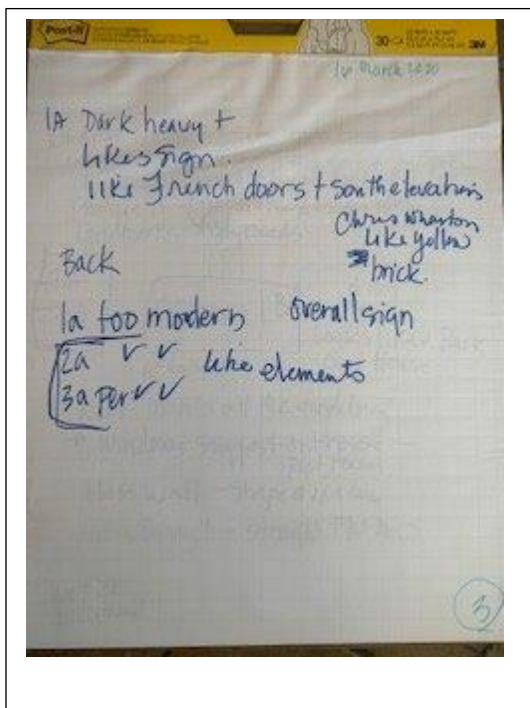 Post-it
30
3M
1st March 2020
1A Dark heavy +
likes sign.
like French doors + south elevations
Chris Wharton
like yellow
brick.
Back
1a too modern overall sign
2a ✓ ✓ like elements
3a Per ✓ ✓
3